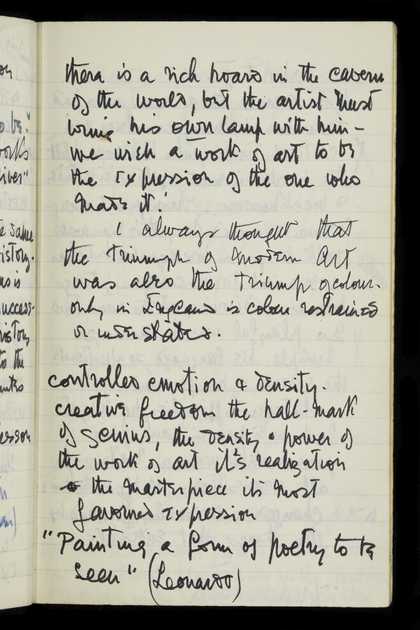 on
to be."
works
lives"
e same
istory.
ns is
uccess-
istory
to the
esson
there is a rich hoard in the cavern
of the world, but the artist must
bring his own lamp with him –
we wish a work of art to be
the expression of the one who
made it.
I always thought that
the triumph of modern Art
was also the triumph of colour.
only in England is colour restrained
or understated.
controlled emotion & density.
creative freedom the hall-mark
of genius, the density & power of
the work of art it's realization
& the masterpiece its most
favoured expression
"Painting, a form of poetry to be
seen" (Leonardo)